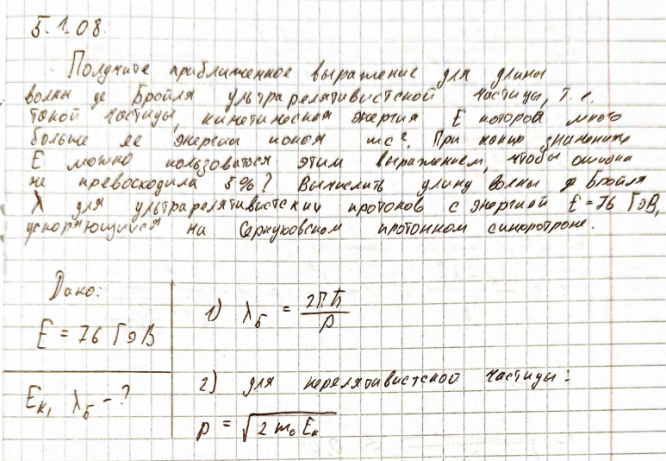 5.1.08.
Получите приближенное выражение для длины
волны де Бройля ультрарелятивистской частицы, т.е.
такой частицы, кинетическая энергия E которой много
больше ее энергии покоя mc². При каких значениях
E можно пользоваться этим выражением, чтобы ошибка
не превосходила 5%? Вычислить длину волны де Бройля
λ для ультрарелятивистских протонов с энергией E = 76 ГэВ,
ускоряющихся на Серпуховском протонном синхротроне.
Дано:
E = 76 ГэВ
Eк, λ_Б - ?
1) λ_Б = 2πħ / p
2) для нерелятивистской частицы:
p = √(2 m₀ Eк)